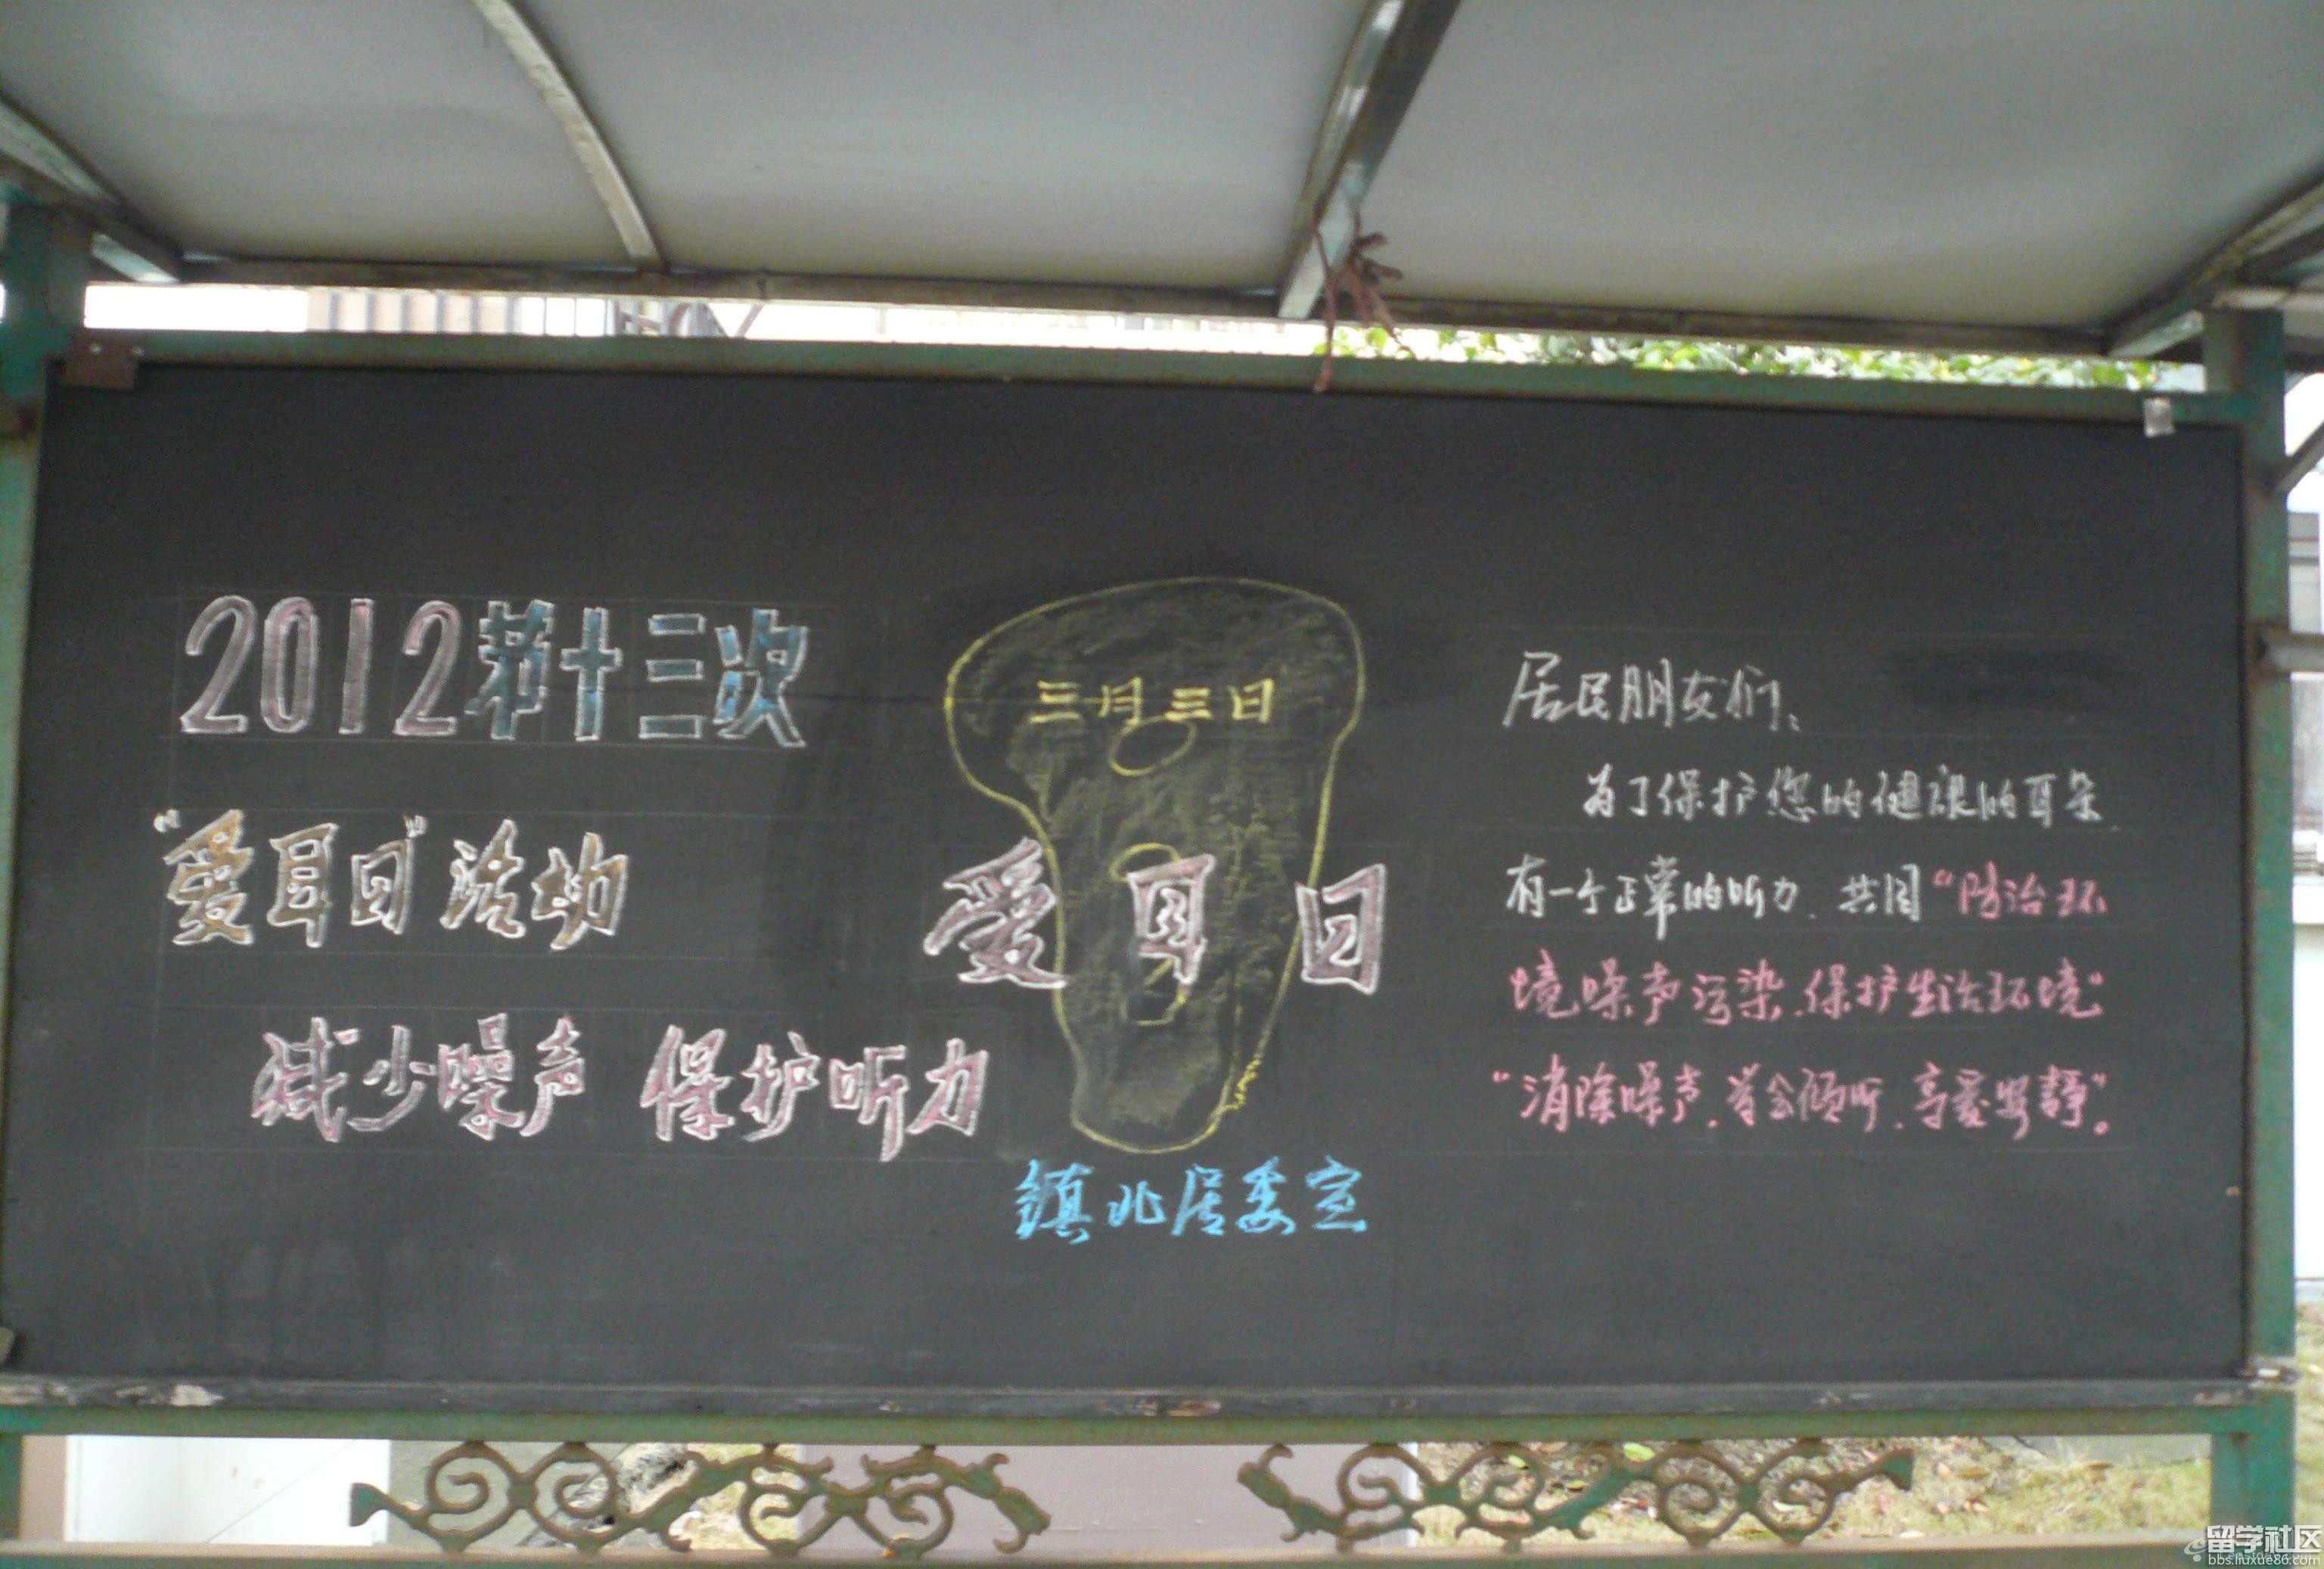 2012第十三次
"爱耳日"活动
减少噪声 保护听力
三月三日
爱耳日
镇北居委宣
居民朋友们:
为了保护您的健康的耳朵
有一个正常的听力、共同"防治环
境噪声污染、保护生活环境"
"消除噪声、学会倾听、享受安静"。
留学社区
bbs.liuxue86.com